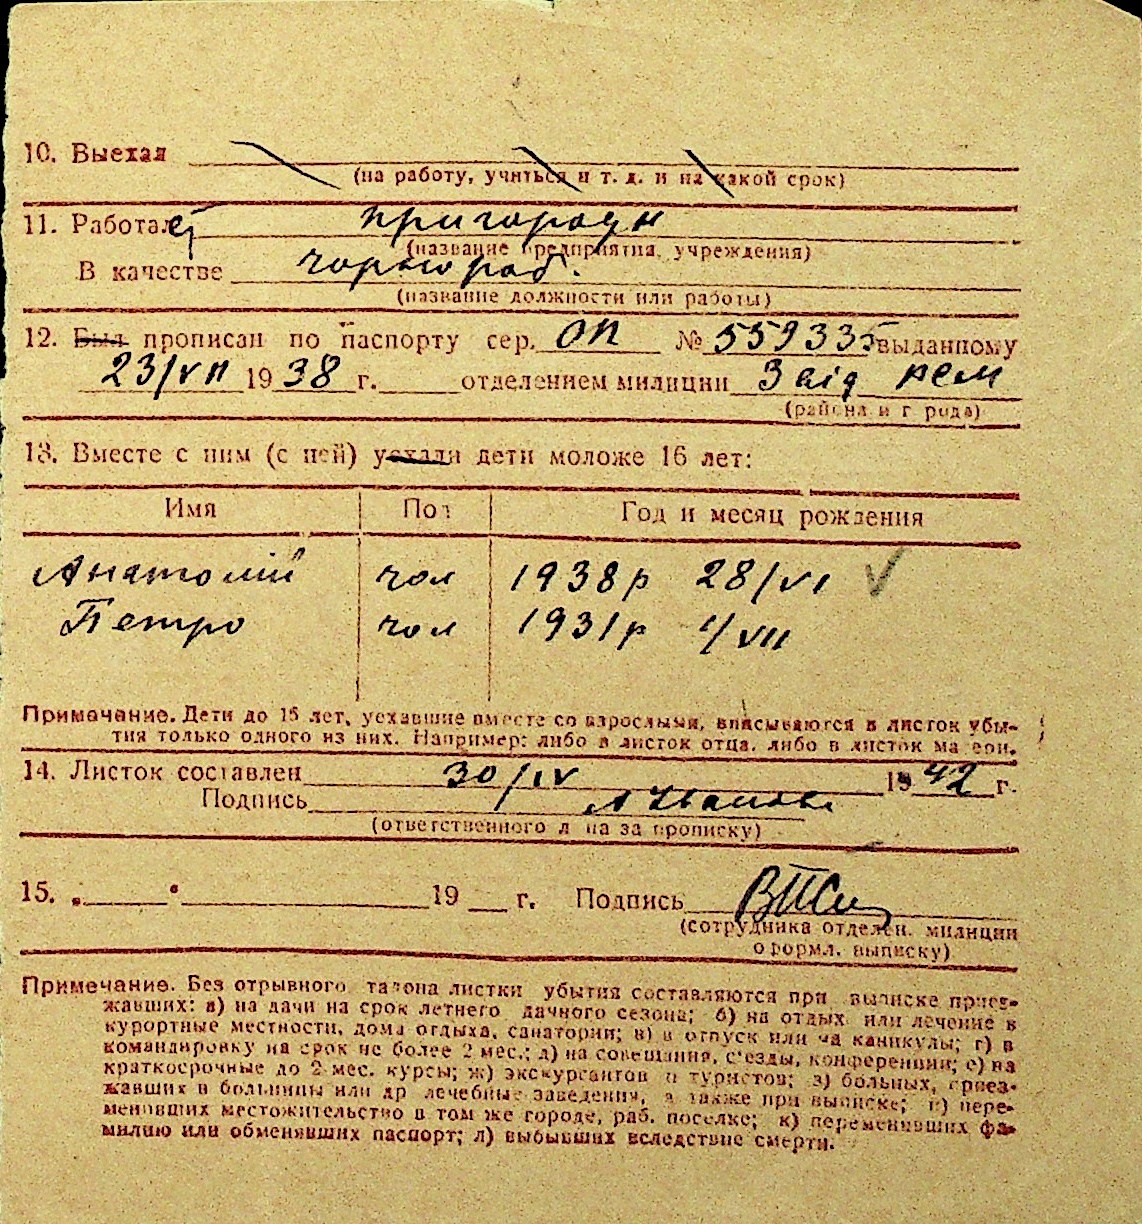 10. Выехал
(на работу, учиться и т. д. и на какой срок)
11. Работал пригородн
(название предприятия, учреждения)
В качестве чорнораб.
(название должности или работы)
12. Был прописан по паспорту сер. ОП № 559335 выданному
23/VII 1938 г. отделением милиции 3 від РСМ
(района и города)
13. Вместе с ним (с ней) уехали дети моложе 16 лет:
Имя Пол Год и месяц рождения
Анатолій чол 1938р 28/VI ✓
Петро чол 1931р 1/VII
Примечание. Дети до 15 лет, уехавшие вместе со взрослыми, вписываются в листок убы-
тия только одного из них. Например: либо в листок отца, либо в листок матери.
14. Листок составлен 30/IV 1942 г.
Подпись
(ответственного лица за прописку)
15. „ “ 19 г. Подпись
(сотрудника отделен. милиции
оформл. выписку)
Примечание. Без отрывного талона листки убытия составляются при выписке приез-
жавших: а) на дачи на срок летнего дачного сезона; б) на отдых или лечение в
курортные местности, дома отдыха, санатории; в) в отпуск или на каникулы; г) в
командировку на срок не более 2 мес.; д) на совещания, съезды, конференции; е) на
краткосрочные до 2 мес. курсы; ж) экскурсантов и туристов; з) больных, приез-
жавших в больницы или др лечебные заведения, а также при выписке; и) пере-
менивших местожительство в том же городе, раб. поселке; к) переменивших фа-
милию или обменявших паспорт; л) выбывших вследствие смерти.